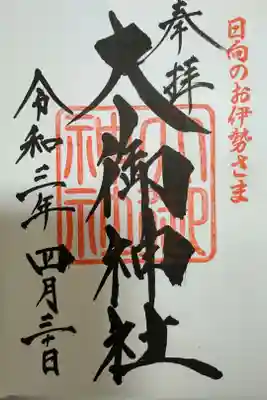 日向のお伊勢さま
奉拝
大御神社
令和三年四月三十日